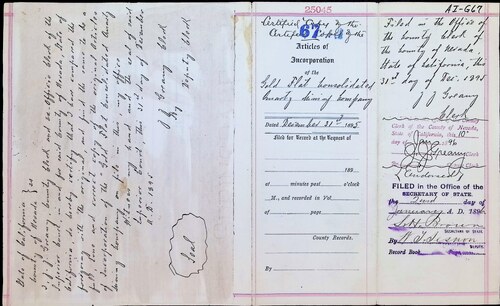 State of California
County of Nevada } ss
I, J. J. Greany County Clerk and ex Officio Clerk of the
Superior Court, in and for said County of Nevada, State of
California do hereby certify that I have compared the
foregoing with the original
full, true and correct copy of the original Articles
of Incorporation of the Gold Flat Consolidated Quartz
Mining Company on file in my office
Witness my hand and the seal of said
Superior Court this 31st day of December
A. D. 1895
J. J. Greany Clerk
By
Deputy Clerk
Seal
25045
Certified Copy of the
67
Articles of
Incorporation
of the
Gold Flat Consolidated
Quartz Mining Company
Dated December 21st 1895
Filed for Record at the Request of
189
at minutes past o'clock
M., and recorded in Vol
of page
County Records.
By
AI-G67
Filed in the Office of
the County Clerk of
the County of Nevada,
State of California, this
31st day of Dec. 1895
J J Greany
Clerk
Clerk of the County of Nevada,
State of California, this 10
day of Jan 1896
J J Greany
Clerk
Endorsed
FILED in the Office of the
SECRETARY OF STATE.
the 22nd day of
January A. D. 1896
L. H. Brown
SECRETARY OF STATE
By
DEPUTY.
Record Book Page